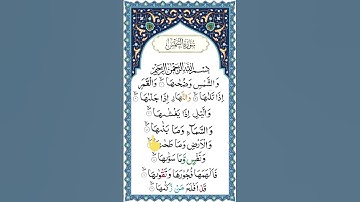 سُورَةُ الشَّمْسِ
بِسْمِ اللَّهِ الرَّحْمَٰنِ الرَّحِيمِ
وَالشَّمْسِ وَضُحٰىهَا ۝ وَالْقَمَرِ
إِذَا تَلٰىهَا ۝ وَالنَّهَارِ إِذَا جَلّٰىهَا ۝
وَالَّيْلِ إِذَا يَغْشٰىهَا ۝
وَالسَّمَآءِ وَمَا بَنٰىهَا ۝
وَالْأَرْضِ وَمَا طَحٰىهَا ۝
وَنَفْسٍ وَّمَا سَوّٰىهَا ۝
فَأَلْهَمَهَا فُجُورَهَا وَتَقْوٰىهَا ۝
قَدْ أَفْلَحَ مَنْ زَكّٰىهَا ۝